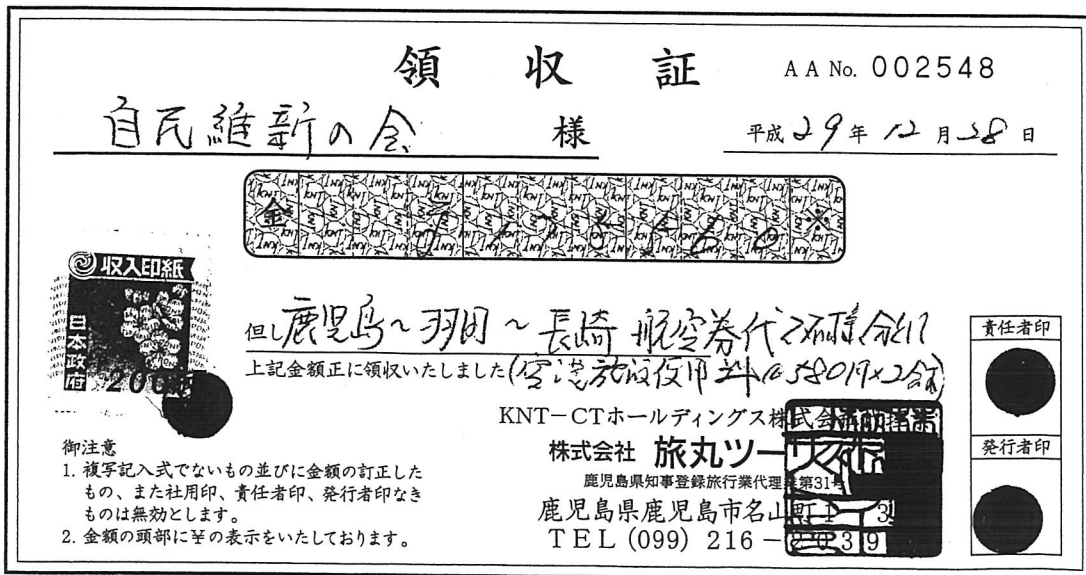 領収証 AA No. 002548
自民維新の会 様 平成29年12月28日
金
収入印紙
日本政府
200円
但し 鹿児島~羽田~長崎 航空券代2名様分として
上記金額正に領収いたしました(空港施設使用料@580円×2含む)
責任者印
発行者印
KNT-CTホールディングス株式会社
株式会社 旅丸ツーリスト
鹿児島県知事登録旅行業代理業第31号
鹿児島県鹿児島市名山町1 3
TEL (099) 216-2039
御注意
1. 複写記入式でないもの並びに金額の訂正した
もの、また社用印、責任者印、発行者印なき
ものは無効とします。
2. 金額の頭部に¥の表示をいたしております。